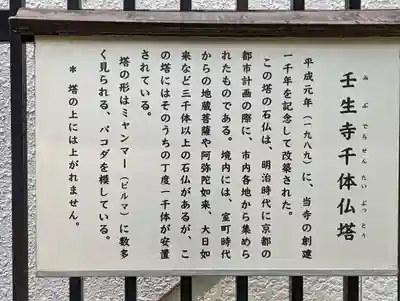 壬生寺千体仏塔
みぶでらせんたいぶっとう
平成元年（一九八九）に、当寺の創建
一千年を記念して改築された。
この塔の石仏は、明治時代に京都の
都市計画の際に、市内各地から集めら
れたものである。境内には、室町時代
からの地蔵菩薩や阿弥陀如来、大日如
来など三千体以上の石仏があるが、こ
の塔にはそのうちの丁度一千体が安置
されている。
塔の形はミャンマー（ビルマ）に数多
く見られる、パコダを模している。
＊塔の上には上がれません。